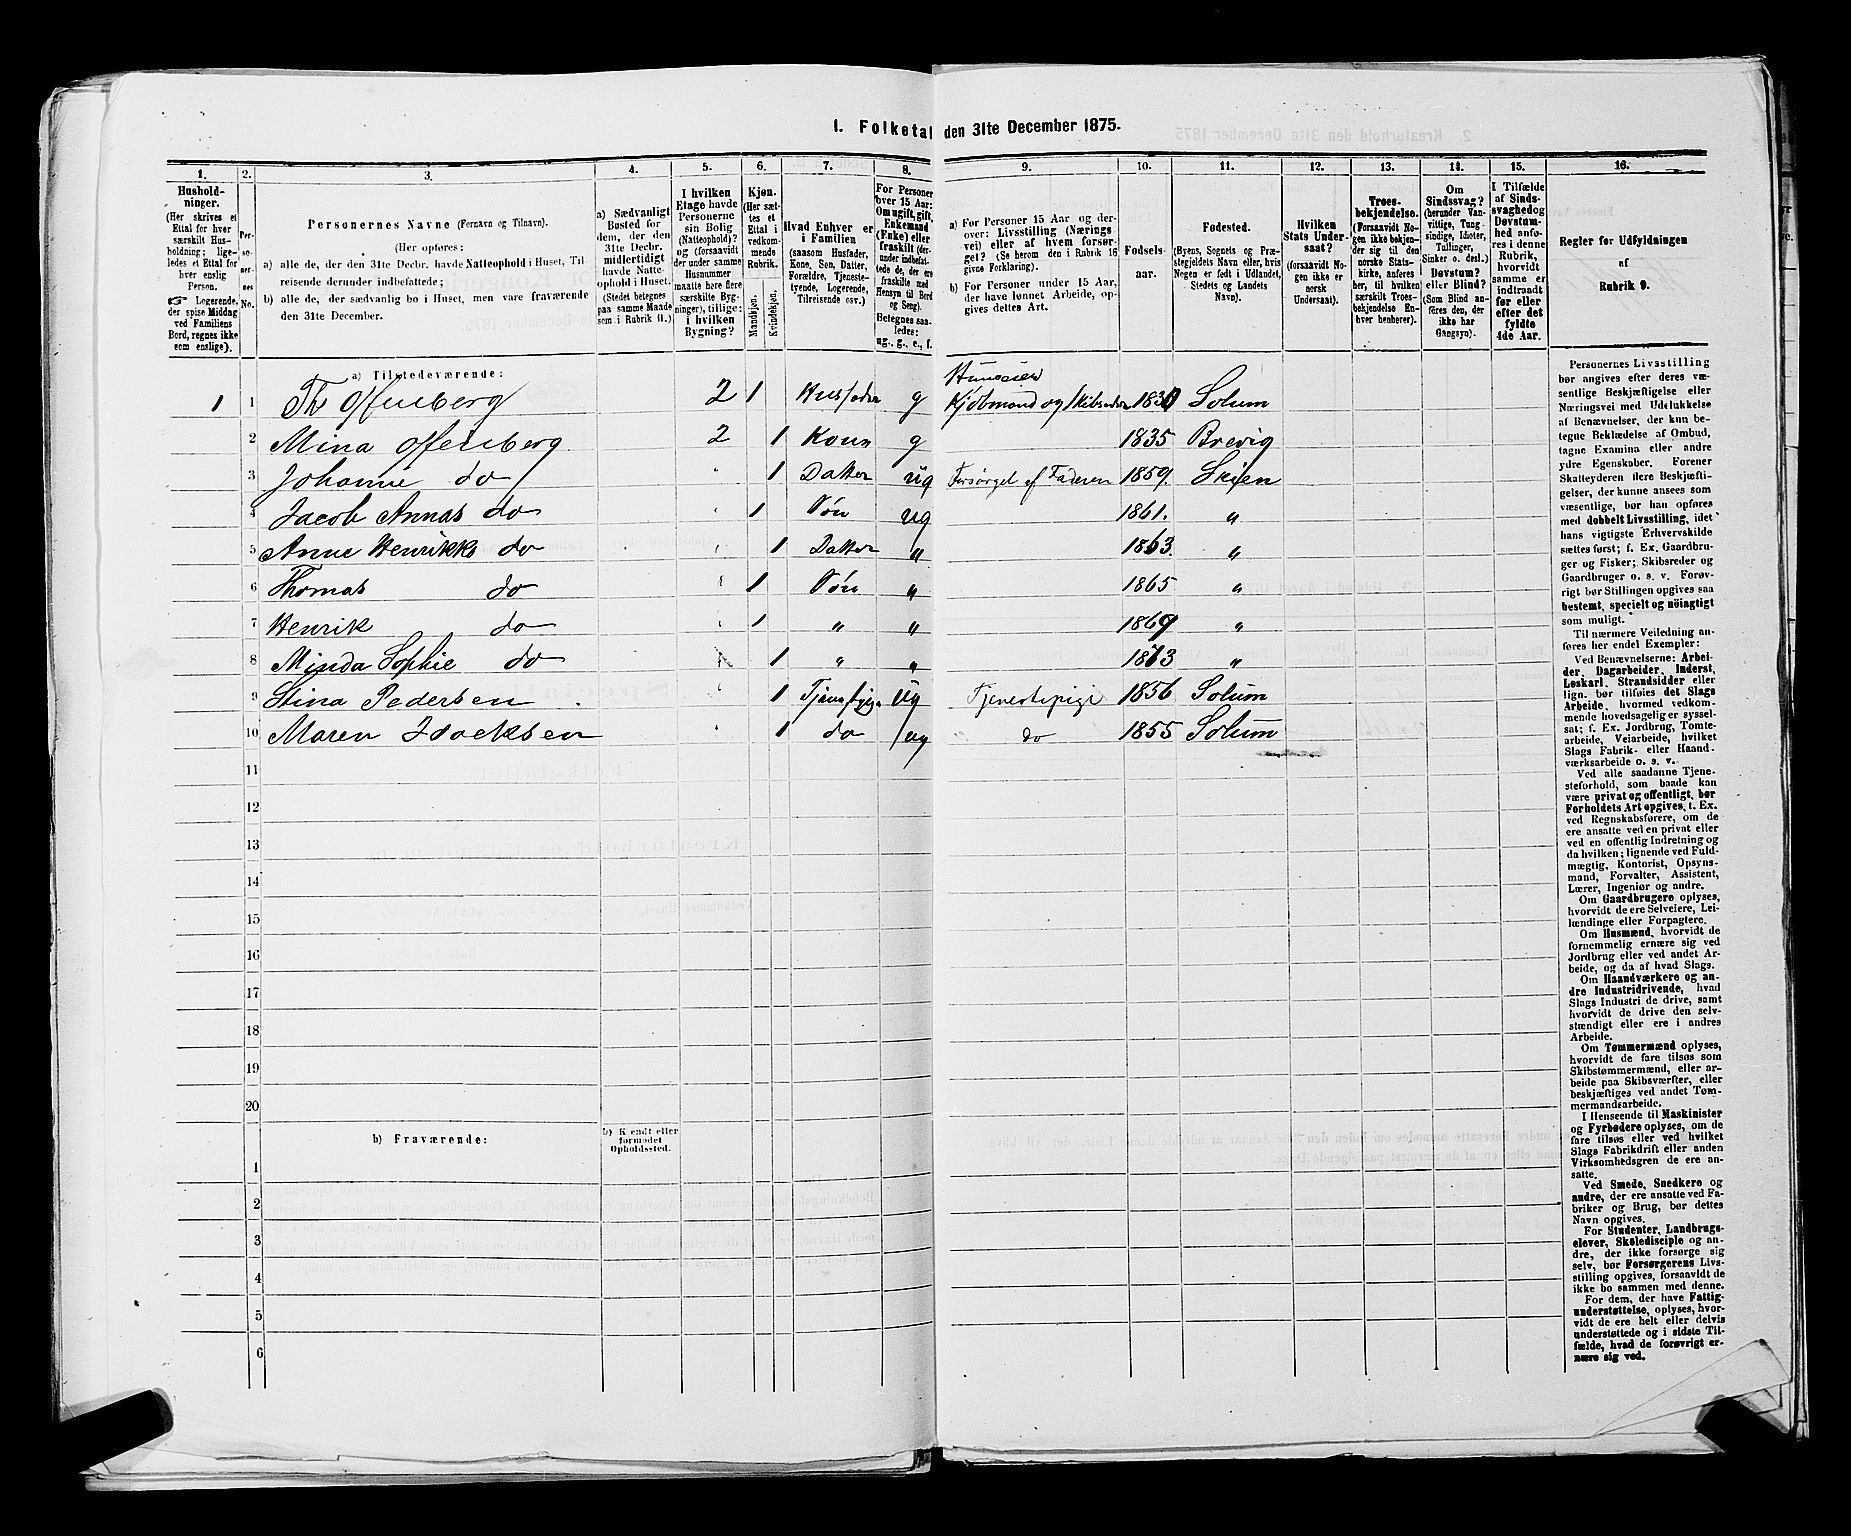 1. Folketal den 31te December 1875.
1. 2. 3. 4. 5. 6. 7. 8. 9. 10. 11. 12. 13. 14. 15. 16.
Hushold-
ninger.
(Her skrives et
Ettal for hver
særskilt Hus-
holdning; lige-
ledes et Ettal for
hver enslig
Person.
☞ Logerende,
der spise Middag
ved Familiens
Bord, regnes ikke
som enslige).
Per-
so-
ner-
nes
No.
Personernes Navne (Fornavn og Tilnavn).
(Her opføres:
a) alle de, der den 31te Decbr. havde Natteophold i Huset, Til-
reisende derunder indbefattede;
b) alle de, der sædvanlig bo i Huset, men vare fraværende
den 31te December.
a) Sædvanligt
Bosted for
dem, der den
31te Decbr.
midlertidigt
havde Natte-
ophold i Huset.
(Stedet betegnes
paa samme Maade
som i Rubrik 11.)
I hvilken
Etage havde
Personerne
sin Bolig
(Natteophold)?
og (forsaavidt
der under samme
Husnummer
maatte høre flere
særskilte Byg-
ninger), tillige:
i hvilken
Bygning?
Kjøn.
(Her sæt-
tes et
Ettal i
vedkom-
mende
Rubrik.
Mandkjøn.
Kvindekjøn.
Hvad Enhver er
i Familien
(saasom Husfader,
Kone, Søn, Datter,
Forældre, Tjeneste-
tyende, Logerende,
Tilreisende osv.)
For Personer
over 15 Aar:
Om ugift, gift,
Enkemand
(Enke) eller
fraskilt (der-
under indbefat-
tede de, der ere
fraskilte med
Hensyn til Bord
og Seng).
Betegnes saa-
ledes:
ug., g., e., f.
a) For Personer 15 Aar og der-
over: Livsstilling (Nærings-
vei) eller af hvem forsør-
get? (Se herom den i Rubrik 16
givne Forklaring).
b) For Personer under 15 Aar,
der have lønnet Arbeide, op-
gives dettes Art.
Fødsels-
aar.
Fødested.
(Byens, Sognets og Præ-
stegjeldets Navn eller, hvis
Nogen er født i Udlandet,
Stedets og Landets
Navn).
Hvilken
Stats Under-
saat?
(forsaavidt No-
gen ikke er
norsk
Undersaat).
Troes-
bekjendelse.
(Forsaavidt No-
gen ikke bekjen-
der sig til den
norske Stats-
kirke, anføres
her, til hvilken
særskilt Troes-
bekjendelse En-
hver henhører).
Om
Sindssvag?
(herunder Van-
vittige, Tung-
sindige, Idioter,
Tullinger,
Sinker o. desl.)
Døvstum?
eller Blind?
(Som Blind an-
føres den, der
ikke har
Gangsyn).
I Tilfælde
af Sinds-
svaghed og
Døvstum-
hed anfø-
res i denne
Rubrik,
hvorvidt
samme er
indtraadt
før eller
efter det
fyldte
4de Aar.
Regler for Udfyldningen
af
Rubrik 9.
a) Tilstedeværende:
Huuseier
1 1 Th Offenberg 2 1 Husfader g Kjøbmand og Skibsreder 1830 Solum
2 Mina Offenberg 2 1 Kone g 1835 Brevig
3 Johanne do " 1 Datter ug Forsørget af Faderen 1859. Skien
4 Jacob Annas do 1 Søn ug 1861. "
5 Anne Henrikke do 1 Datter " 1863 "
6 Thomas do 1 Søn " 1865 "
7 Henrik do 1 " " 1869 "
8 Minda Sophie do 1 " 1873 "
9 Stina Pedersen 1 ug Tjenestepige 1856 Solum
10 Maren Isacksen 1 do ug do 1855 Solum
11
12
13
14
15
16
17
18
19
20
b) Fraværende:
b) Kjendt eller
formodet
Opholdssted.
1
2
3
4
5
6
Personernes Livsstilling
bør angives efter deres væ-
sentlige Beskjæftigelse eller
Næringsvei med Udelukkelse
af Benævnelser, der kun be-
tegne Beklædelse af Ombud,
tagne Examina eller andre
ydre Egenskaber. Forener
Skatteyderen flere Beskjæfti-
gelser, der kunne ansees som
væsentlige, bør han opføres
med dobbelt Livsstilling, idet
hans vigtigste Erhvervskilde
sættes først; f. Ex. Gaardbru-
ger og Fisker; Skibsreder og
Gaardbruger o. s. v. Forøv-
rigt bør Stillingen opgives saa
bestemt, specielt og nöiagtigt
som muligt.
Til nærmere Veiledning an-
føres her endel Exempler:
Ved Benævnelserne: Arbei-
der, Dagarbeider, Inderst,
Løskarl, Strandsidder eller
lign. bør tilføies det Slags
Arbeide, hvormed vedkom-
mende hovedsagelig er syssel-
sat; f. Ex. Jordbrug, Tomte-
arbeide, Veiarbeide, hvilket
Slags Fabrik- eller Haand-
værksarbeide o. s. v.
Ved alle saadanne Tjene-
steforhold, som baade kan
være privat og offentligt, bør
Forholdets Art opgives, t. Ex.
ved Regnskabsførere, om de
ere ansatte ved en privat eller
ved en offentlig Indretning og
da hvilken; lignende ved Fuld-
mægtig, Kontorist, Opsyns-
mand, Forvalter, Assistent,
Lærer, Ingeniør og andre.
Om Gaardbrugere oplyses,
hvorvidt de ere Selveiere, Lei-
lændinge eller Forpagtere.
Om Husmænd, hvorvidt de
fornemmelig ernære sig ved
Jordbrug eller ved andet Ar-
beide, og da af hvad Slags.
Om Haandværkere og an-
dre Industridrivende, hvad
Slags Industri de drive, samt
hvorvidt de drive den selv-
stændigt eller ere i andres
Arbeide.
Om Tømmermænd oplyses,
hvorvidt de fare tilsøs som
Skibstømmermænd, eller ar-
beide paa Skibsværfter, eller
beskjæftiges ved andet Tøm-
mermandsarbeide.
I Henseende til Maskinister
og Fyrbødere oplyses, om de
fare tilsøs eller ved hvilket
Slags Fabrikdrift eller anden
Virksomhedsgren de ere an-
satte.
Ved Smede, Snedkere og
andre, der ere ansatte ved Fa-
briker og Brug, bør dettes
Navn opgives.
For Studenter, Landbrugs-
elever, Skoledisciple og an-
dre, der ikke forsørge sig
selv, bør Forsørgerens Livs-
stilling opgives, forsaavidt de
ikke bo sammen med denne.
For dem, der have Fattig-
understøttelse, oplyses, hvor-
vidt de ere helt eller delvis
understøttede og i sidste Til-
fælde, hvad de forøvrigt er-
nære sig ved.